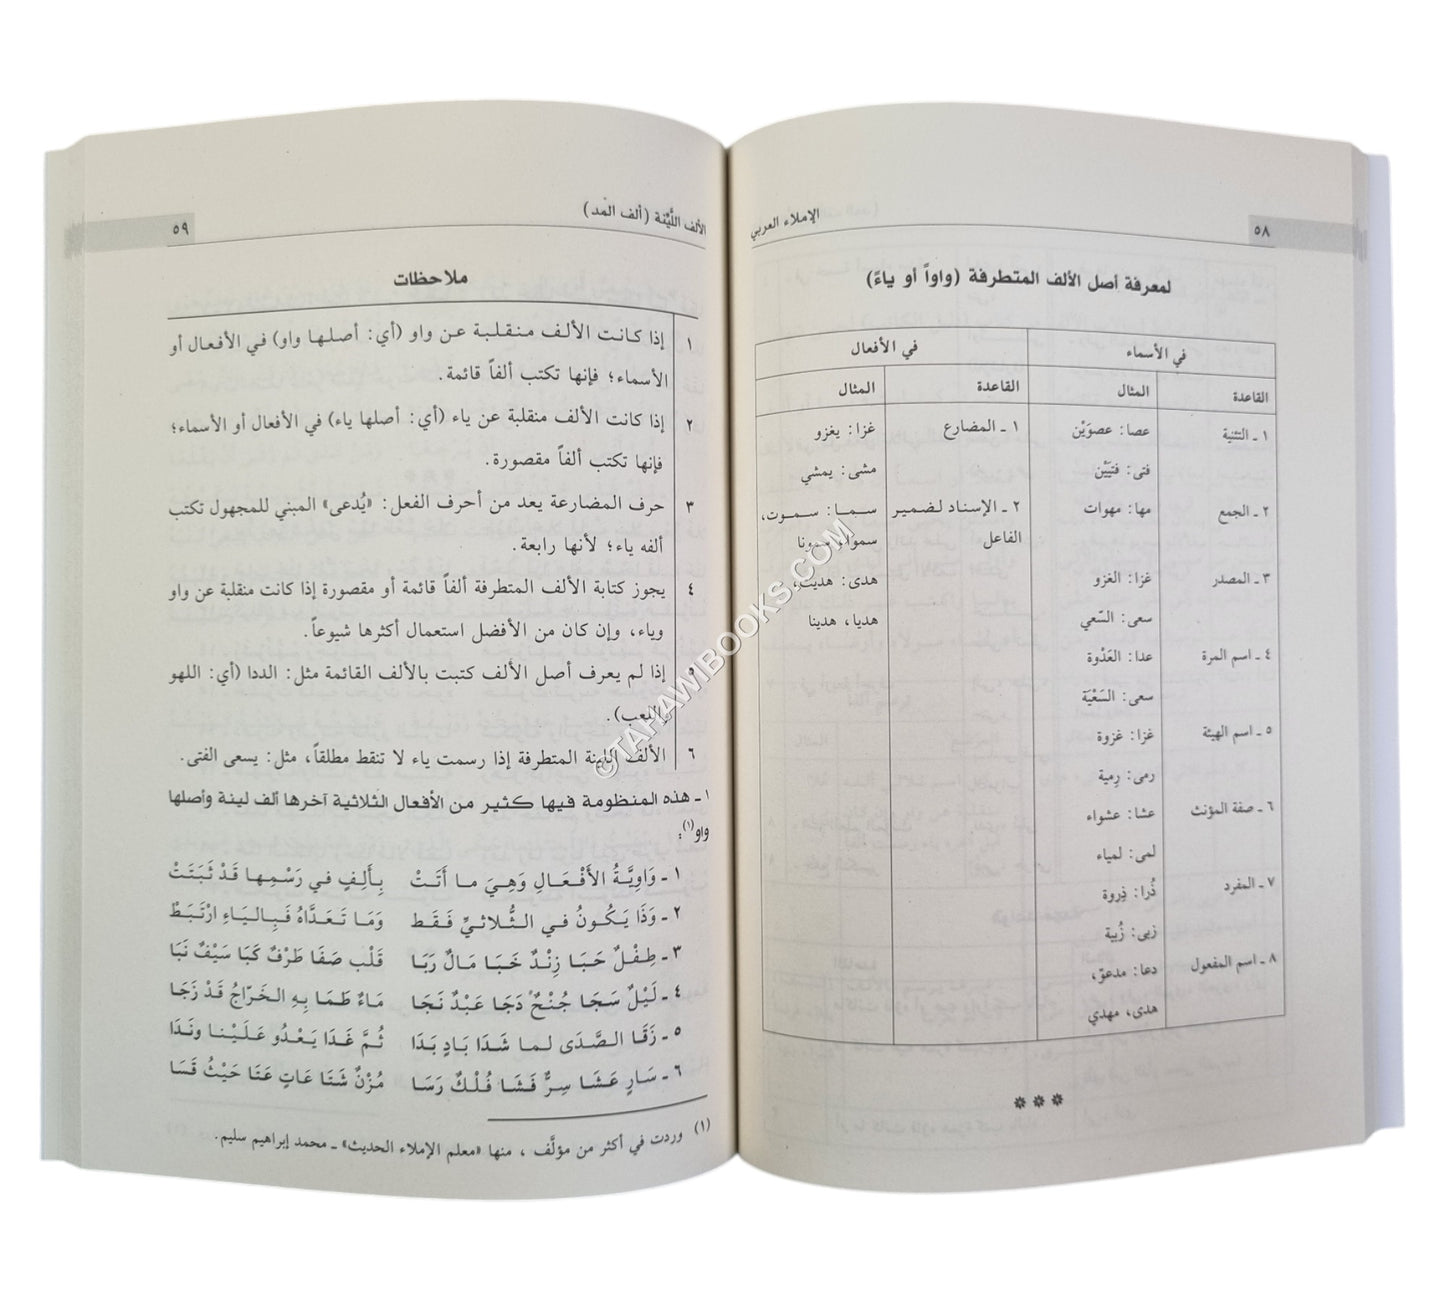 ٥٨
الإملاء العربي
لمعرفة أصل الألف المتطرفة (واواً أو ياءً)
في الأسماء في الأفعال
القاعدة المثال القاعدة المثال
١ ـ التثنية عصا: عصوَيْن ١ ـ المضارع غزا: يغزو
فتى: فتيَيْن مشى: يمشي
٢ ـ الجمع مها: مهوات ٢ ـ الإسناد لضمير سـمـا: سـمـوت،
الفاعل سموا، سمونا
٣ ـ المصدر غزا: الغزو هدى: هديت،
سعى: السّعي هديا، هدينا
٤ ـ اسم المرة عدا: العَدْوة
سعى: السَعْيَة
٥ ـ اسم الهيئة غزا: غزوة
رمى: رِمية
٦ ـ صفة المؤنث عشا: عشواء
لمى: لمياء
٧ ـ المفرد ذُرا: ذِروة
زبى: زُبية
٨ ـ اسم المفعول دعا: مدعوّ،
هدى، مهدي
***
الألف اللَّيِّنة (ألف المَد)
٥٩
ملاحظات
١ إذا كانت الألف منقلبة عن واو (أي: أصلها واو) في الأفعال أو
الأسماء؛ فإنها تكتب ألفاً قائمة.
٢ إذا كانت الألف منقلبة عن ياء (أي: أصلها ياء) في الأفعال أو الأسماء؛
فإنها تكتب ألفاً مقصورة.
٣ حرف المضارعة يعد من أحرف الفعل: «يُدعى» المبني للمجهول تكتب
ألفه ياء؛ لأنها رابعة.
٤ يجوز كتابة الألف المتطرفة ألفاً قائمة أو مقصورة إذا كانت منقلبة عن واو
وياء، وإن كان من الأفضل استعمال أكثرها شيوعاً.
٥ إذا لم يعرف أصل الألف كتبت بالألف القائمة مثل: الددا (أي: اللهو
واللعب).
٦ الألف اللينة المتطرفة إذا رسمت ياء لا تنقط مطلقاً، مثل: يسعى الفتى.
١ ـ هذه المنظومة فيها كثير من الأفعال الثلاثية آخرها ألف لينة وأصلها
واو(١):
١ ـ وَاوِيَّةُ الأَفْعَـالِ وَهِيَ مـا أَتَـتْ بِـأَلِـفٍ في رَسْمِـهـا قَـدْ ثَبَـتَـتْ
٢ ـ وَذَا يَـكُـونُ فـي الثُّـلاثيِّ فَـقَـط وَمَـا تَـعَـدَّاهُ فَـبِـالـيَـاءِ ارْتَـبَـطْ
٣ ـ طِفْـلٌ حَبَـا زِنْـدٌ خَبَـا مَـالٌ رَبَـا قَلْـب صَفَـا طَرْفٌ كَبَـا سَيْـفٌ نَبَـا
٤ ـ لَيْـلٌ سَجَـا جُنْـحٌ دَجَـا عَبْـدٌ نَجَـا مَـاءٌ طَمَـا بِـهِ الخَـرَّاجُ قَـدْ زَجَـا
٥ ـ زَقَـا الـصَّـدَى لـمـا شَـدَا بَـادٍ بَـدَا ثُـمَّ غَـدَا يَـعْـدُو عَـلَـيْـنـا ونَـدَا
٦ ـ سَـارٍ عَـشَـا سِـرٌّ فَـشَـا فُـلْـكٌ رَسَـا مُزْنٌ شَتَـا عَاتٍ عَتَـا حَيْـثُ قَسَـا
(١) وردت في أكثر من مؤلَّف ، منها «معلم الإملاء الحديث» ـ محمد إبراهيم سليم.
©TAHAWIBOOKS.COM